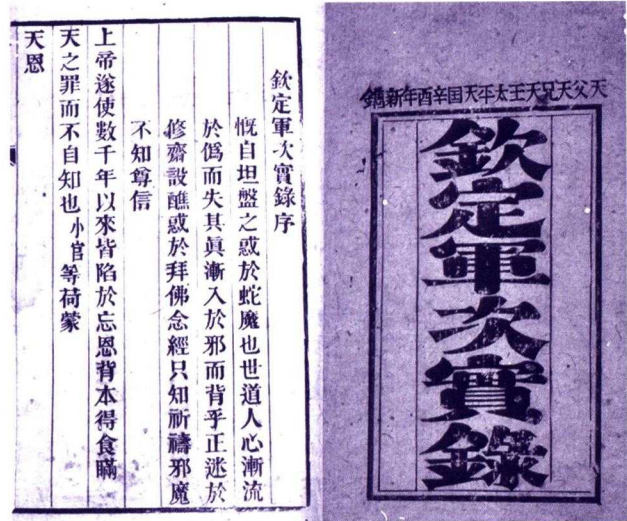 天父天兄天王太平天国辛酉年新鐫
欽定軍次實錄
欽定軍次實錄序
慨自坦盤之惑於蛇魔也世道人心漸流
於僞而失其眞漸入於邪而背乎正迷於
修齋設醮惑於拜佛念經只知祈禱邪魔
不知尊信
上帝遂使數千年以來皆陷於忘恩背本得食瞞
天之罪而不自知也小官等荷蒙
天恩